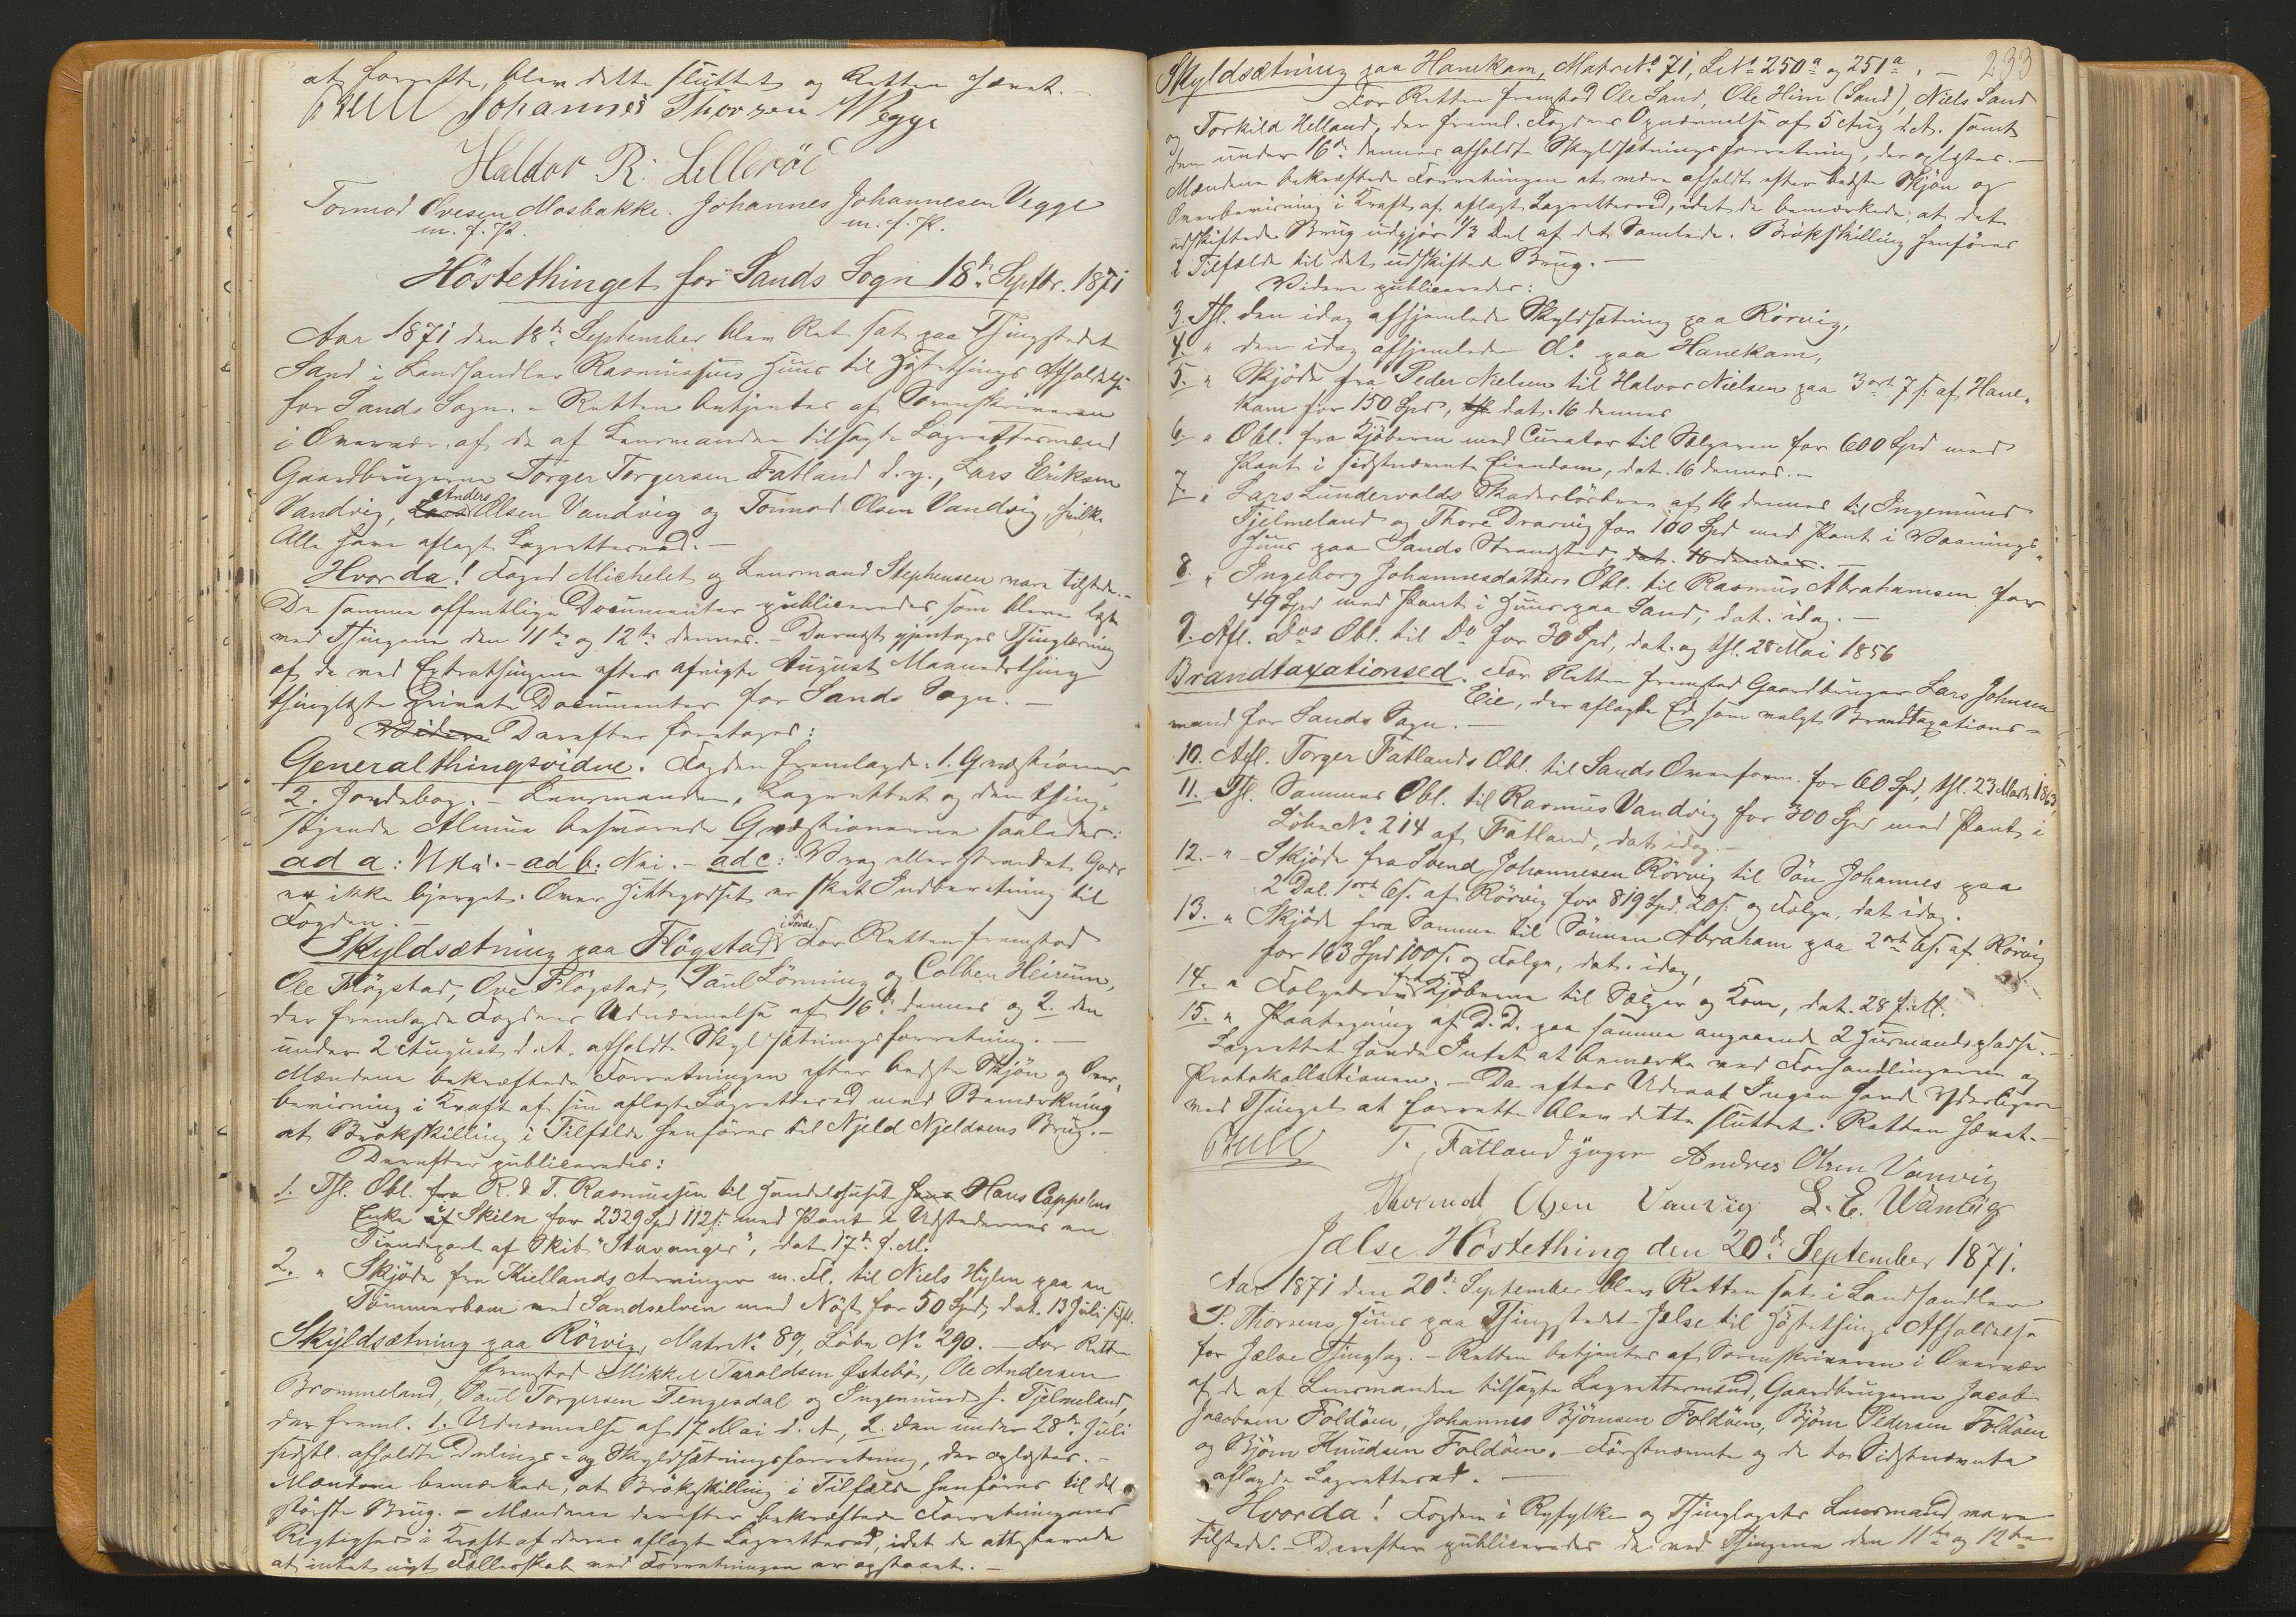 at forrette, blev dette sluttet og Retten hævet. -
Johannes Thorsen Wegge
Haldor R. Lilleröi
Tormod Ovesen Mosbakke. Johannes Johannesen Vegge
m. f. P. m. f. P.
Höstethinget for Sands Sogn 18de Septbr. 1871
Aar 1871 den 18de September blev Ret sat paa Thingstedet
Sand i Landhandler Rasmussens Huus til Høstethings Afholdelse
for Sands Sogn. - Retten betjentes af Sorenskriveren
i Overvær af de af Lensmanden tilsagte Lagrettesmænd
Gaardbrugerne Torger Torgersen Fatland d. y., Lars Eriksen
Vandvig, Anders Olsen Vandvig og Tormod Olsen Vandvig, hvilke
Alle have aflagt Lagrettesed. -
Hvorda! Foged Michelet og Lensmand Stephensen vare tilstede. -
De samme offentlige Documenter publiceredes, som bleve læst
ved Thingene den 11te og 12te dennes. - Dernæst gjentoges Thinglæsning
af de ved Extrathingene efter afvigte August Maanedsthing
thinglæste Private Documenter for Sands Sogn. -
Videre Derefter foretoges:
Generalthingsvidne. Fogden fremlagde 1. Qvæstioner,
2. Jordebog. - Lensmanden, Lagrettet og den thing-
søgende Almue besvarede Qvæstionerne saaledes:
ad a: Nei. - ad b. Nei. - ad c: Vrag eller strandet Gods
er ikke bjerget. Over Hittegodset er sket Indberetning til
Fogden. -
Skyldsætning paa Flögstad i Sovde. For Retten fremstod
Ole Flögstad, Ove Flögstad, Paul Lönning og Colben Heirum,
der fremlagde Fogdens Udnævnelse af 16de dennes og 2. den
under 2 August d. A. afholdte Skyldsætningsforretning. -
Mændene bekræftede Forretningen efter bedste Skjön og Over-
bevisning i Kraft af sin aflagte Lagrettesed med Bemærkning
at Brökskilling i Tilfælde henföres til Njeld Njeldsens Brug. -
Derefter publiceredes:
1. Thl. Obl. fra R. & T. Rasmussen til Handelshuset Hans Cappelens
Enke af Skien for 2329 Spd 112 s. med Pant i Udstedernes en
Tiendepart af Skib "Stavanger", dat 17de f. M.
2. " Skjöde fra Kiellands Arvinger m. Fl. til Niels Hylen paa en
Tömmerbom ved Sandselven med Nöst for 50 Spd, dat. 13 Juli sidstl.
Skyldsætning paa Rörvig, Matr No 89, Löbe No 290. - For Retten
fremstod Mikkel Taraldsen Östebö, Ole Andersen
Brommeland, Paul Torgersen Tengesdal og Ingemund J. Tjelmeland,
der freml. 1. Udnævnelse af 17 Mai d. A, 2. den under 28de Juli
sidstl. afholdte Delings- og Skyldsætningsforretning, der oplæstes. -
Mændene bemærkede, at Brökskilling i Tilfælde henföres til det
störste Brug. - Mændene derefter bekræftede Forretningens
Rigtighed i Kraft af deres aflagte Lagrettesed, idet de attesterede
at intet nyt Fællesskab ved Forretningen er opstaaet. -
233
Skyldsætning paa Hanekam, Matr No 71, LNo 250a og 251a. -
For Retten fremstod Ole Sand, Ole Hiim (Sand), Niels Sand
og Torkild Helland, der freml. Fogdens Opnævnelse af 5 Aug d. A. samt
den under 16de dennes afholdte Skyldsætningsforretning, der oplæstes. -
Mændene bekræftede Forretningen at være afholdt efter bedste Skjön og
Overbevisning i Kraft af aflagt Lagrettesed, idet de bemærkede, at det
udskiftede Brug udgjör 1/3 Del af det Samlede. Brökskilling henföres
i Tilfælde til det udskiftede Brug. -
Videre publiceredes:
3. Thl. den idag afhjemlede Skyldsætning paa Rörvig,
4. " den idag afhjemlede do paa Hanekam,
5. " Skjöde fra Peder Nielsen til Halvor Nielsen paa 3 ort 7 s. af Hane-
kam for 150 Spd, dat. 16 dennes
6. " Obl. fra Kjöberen med Curator til Sælgeren for 600 Spd med
Pant i sidstnævnte Eiendom, dat. 16 dennes. -
7. " Lars Lundervolds Skadeslösbrev af 16 dennes til Ingemund
Tjelmeland og Thore Drarvig for 100 Spd med Pant i Vaanings-
huus paa Sands Strandsted, dat. 16 dennes. -
8. " Ingeborg Johannesdatters Obl. til Rasmus Abrahamsen for
49 Spd med Pant i Huus paa Sand, dat. idag. -
9. Afl. Dos Obl. til Do for 30 Spd, dat. og thl. 28 Mai 1856
Brandtaxationsed. For Retten fremstod Gaardbruger Lars Johnsen
Eie, der aflagde Ed som valgt Brandtaxations-
mand for Sands Sogn. -
10. Afl. Torger Fatlands Obl. til Sands Overform. for 60 Spd, thl. 23 Marts 1863,
11. Thl. Sammes Obl. til Rasmus Vandvig for 300 Spd med Pant i
Löbe No 214 af Fatland, dat idag. -
12. - " - Skjöde fra Svend Johannesen Rörvig til Sön Johannes paa
2 Dal. 1 ort 6 s. af Rörvig for 819 Spd. 20 s. og Folge, dat idag.
13. " Skjöde fra Samme til Sönnen Abraham paa 2 ort 6 s. af Rörvig
for 163 Spd 100 s. og Folge, dat. idag,
14. " Folgebrev fra Kjöberne til Sælger og Kone, dat. 28 f. M.
15. " Paategning af D. D. paa samme angaaende 2 Huusmandspladse. -
Lagrettet havde Intet at bemærke ved Forhandlingerne og
Protokollationen. - Da efter Udraab Ingen havde Yderligere
ved Thinget at forrette blev dette sluttet. Retten hævet. -
T. Fatland yngre Andres Olsen Vanvig
Thormod Olsen Vanvig L. E. Wanvig
Jælse Höstething den 20de September 1871.
Aar 1871 den 20de September blev Retten sat i Landhandler
P. Thorsens Huus paa Thingstedet Jælse til Høstethings Afholdelse
for Jælse Thinglag. - Retten betjentes af Sorenskriveren i Overvær
af de af Lensmanden tilsagte Lagrettesmænd, Gaardbrugerne Jacob
Jacobsen Foldöen, Johannes Björnsen Foldöen, Björn Pedersen Foldöen
og Björn Knudsen Foldöen. - Förstnævnte og de to Sidstnævnte
aflagde Lagrettesed. -
Hvorda! Fogden i Ryfylke og Thinglagets Lensmand vare
tilstede. - Derefter publiceredes de ved Thingene den 11te og 12te